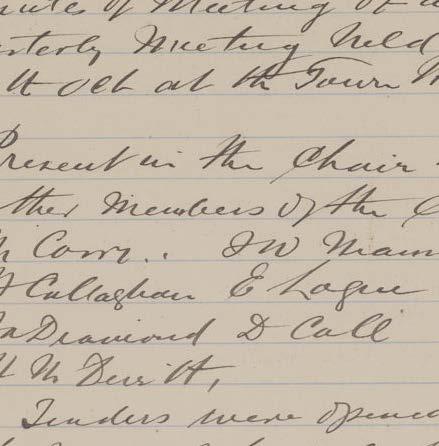 Minutes of Meeting of
Quarterly Meeting held
Oct at the Town
Present in the Chair
Other Members of the
Corry. J W Mann
Callaghan E Logue
Dramond D Call
M Devitt,
Tenders were opened